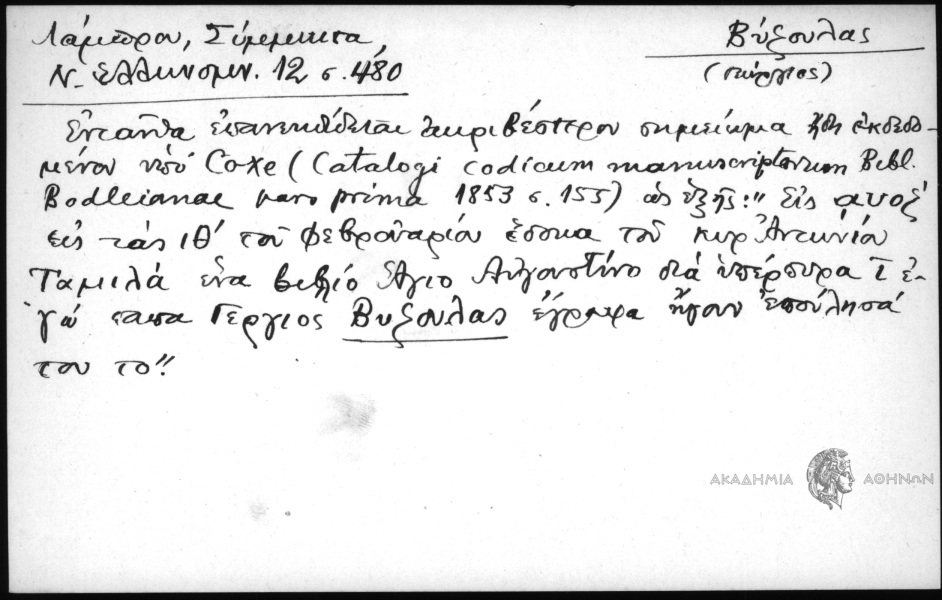 Λάμπρου, Σύμμεικτα,
Βύζουλας
Ν. Ἑλληνομν. 12 σ. 480
(Γεώργιος)
Ἐνταῦθα ἐπανεκδίδεται ἀκριβέστερον σημείωμα ἤδη ἐκδεδο-
μένον ὑπὸ Coxe (Catalogi codicum manuscriptorum Bibl.
Bodleianae pars prima 1853 σ. 155) ὡς ἑξῆς: " Εἰς αυοξ
εἰς τὰς ιθ' τοῦ Φεβρουαρίου ἔδοκα τοῦ κυρ Ἀντωνίου
Ταμιλᾶ ἕνα βιβλίο Ἅγιο Αὐγουστίνο διὰ ὑπέρπυρα ῑ ἐ-
γώ παπα Γεργιος Βυζουλας ἔγραψα ἤγουν ἐπούλησά
του το"
ΑΚΑΔΗΜΙΑ ΑΘΗΝΩΝ